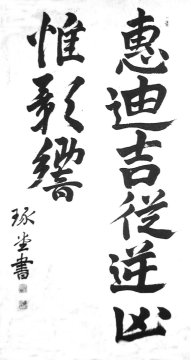 惠迪吉従逆凶
惟影響
琢堂書